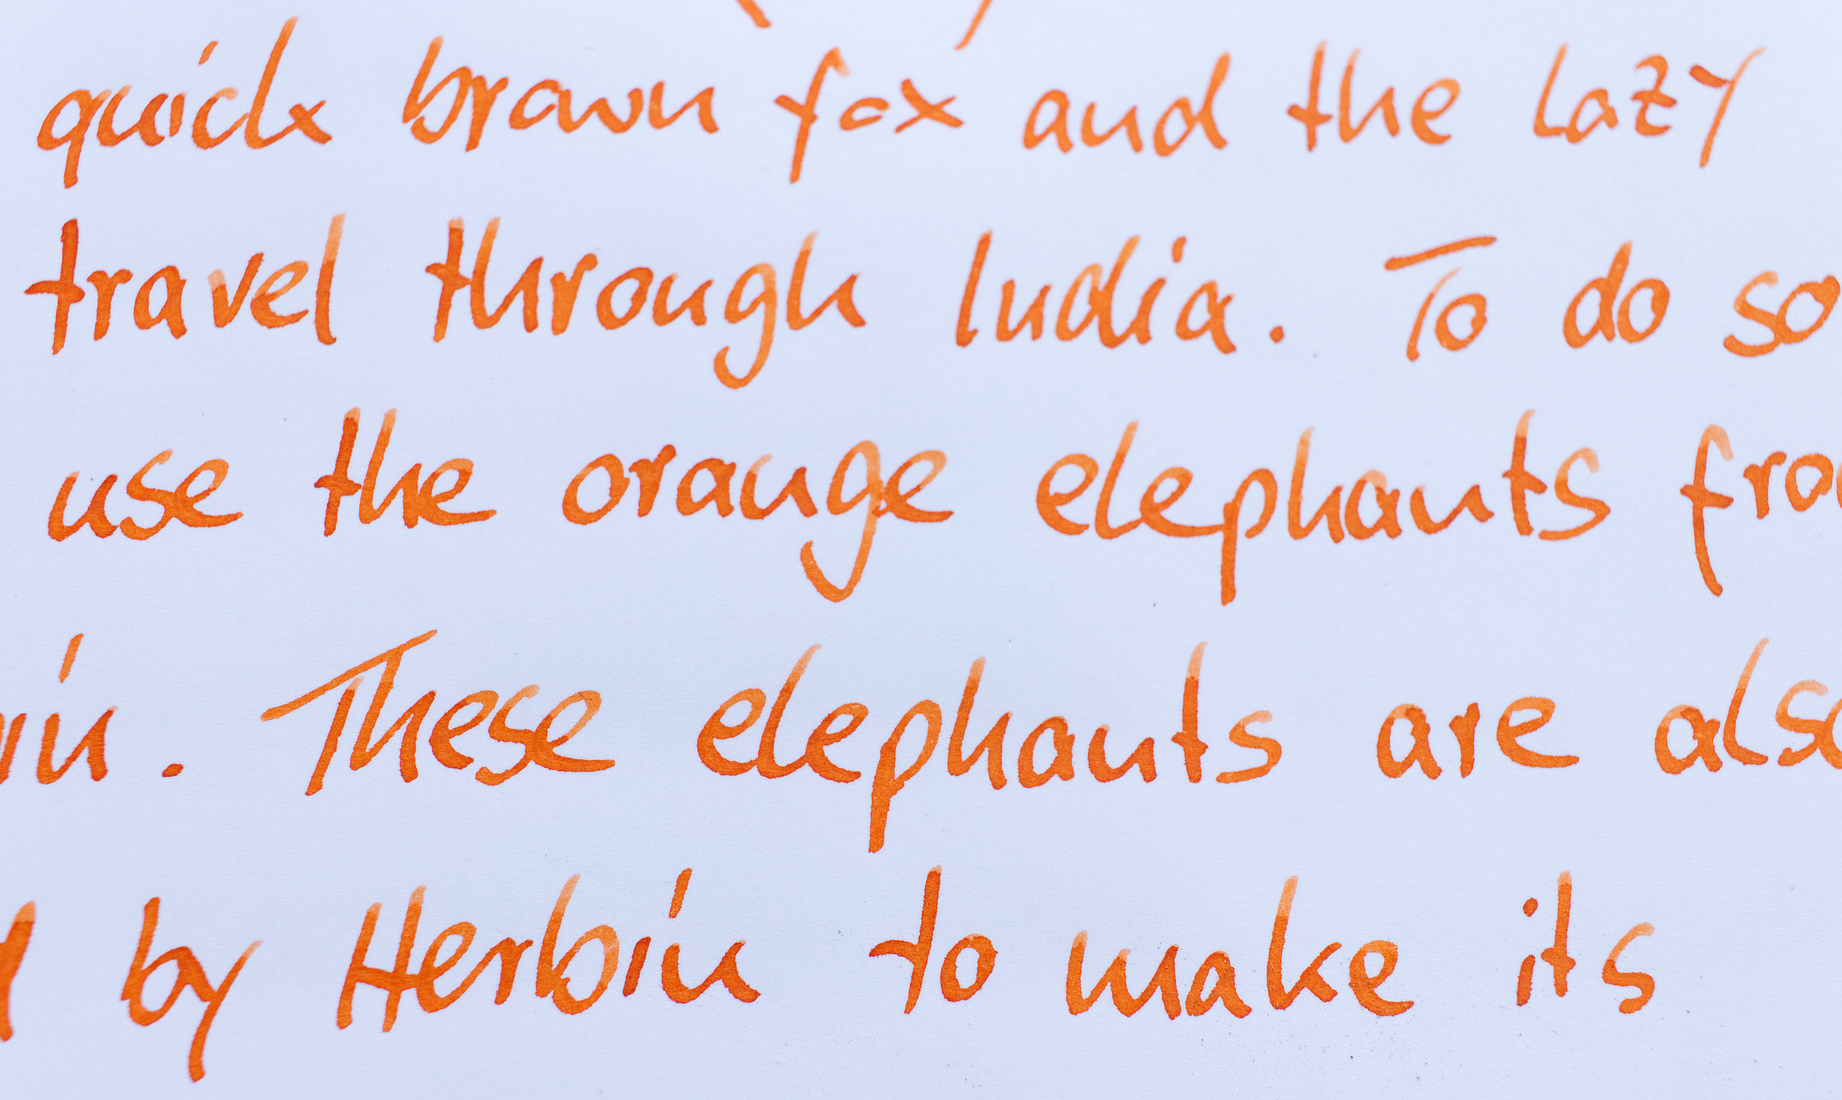 quick brown fox and the lazy
travel through India. To do so
use the orange elephants
These elephants are also
by Herbin to make its